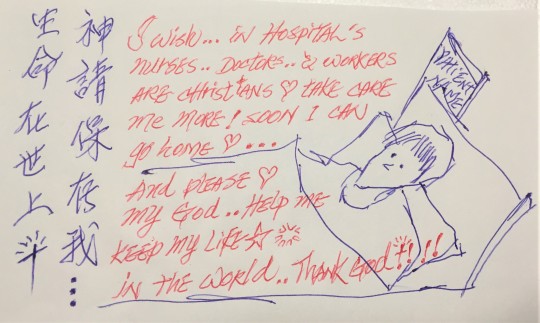 神請保存我...
生命在世上
I wish... in Hospital's
nurses.. Doctors.. & workers
are Christians ♡ take care
me more! Soon I can
go home ♡...
And please ♡
my God.. Help me
keep my life☆
in the world.. Thank God!!!!
Patient
Name